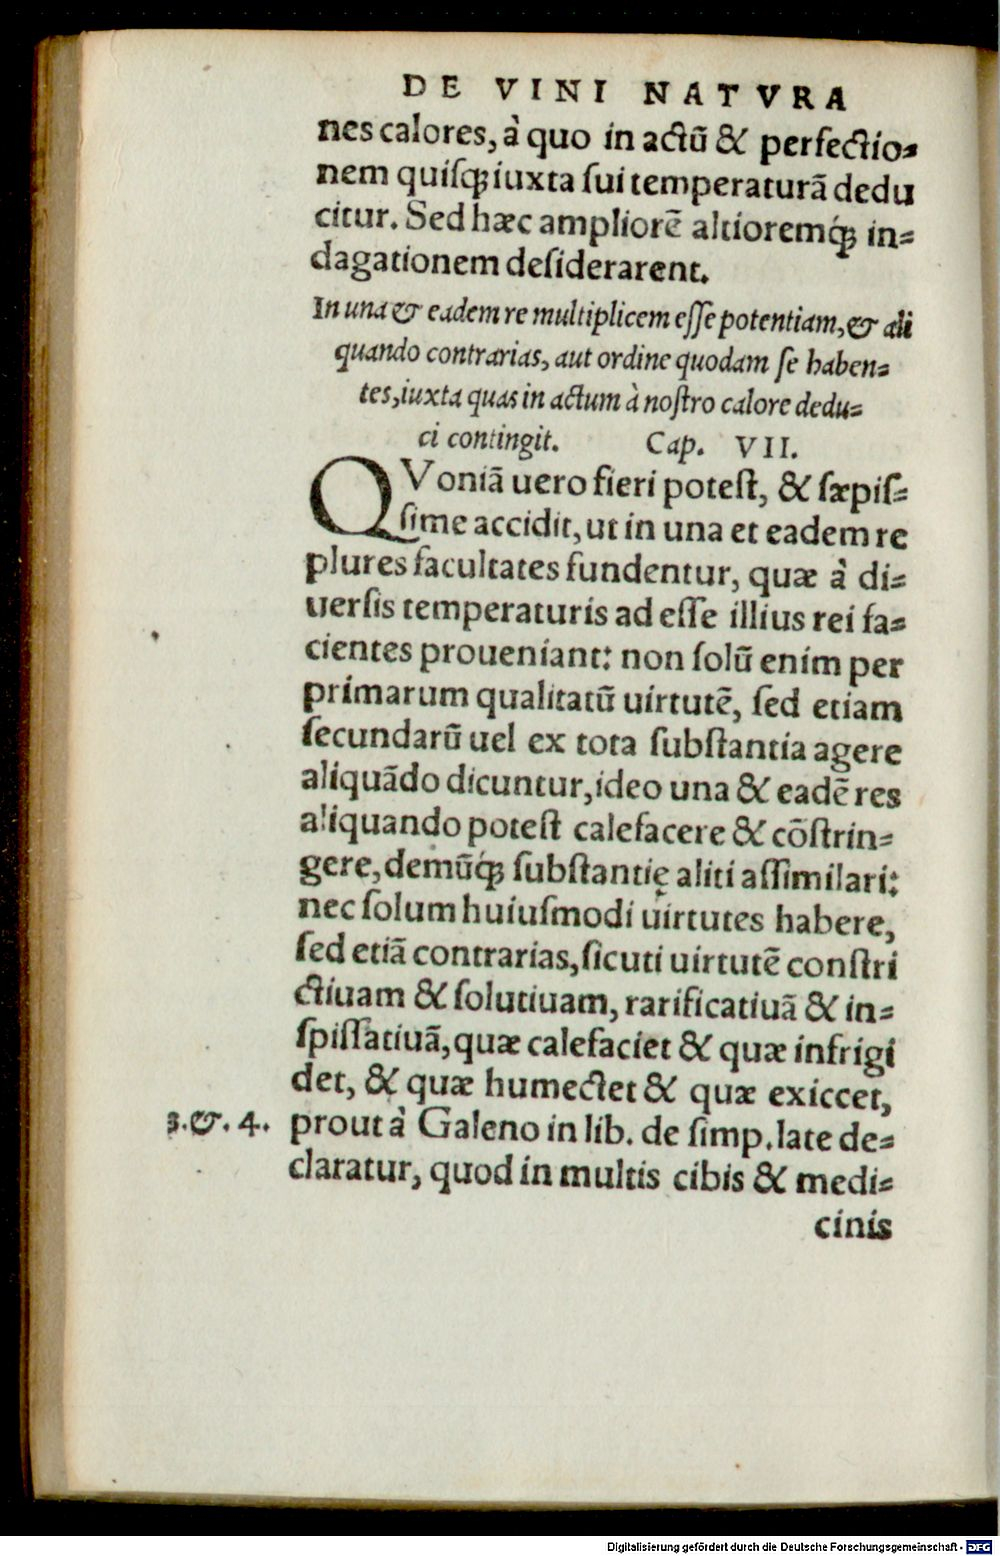 DE VINI NATVRA
nes calores, à quo in actũ & perfectio-
nem quisq́; iuxta sui temperaturã dedu
citur. Sed hæc ampliorẽ altioremq́; in-
dagationem desiderarent.
In una & eadem re multiplicem esse potentiam, & ali
quando contrarias, aut ordine quodam se haben-
tes, iuxta quas in actum à nostro calore dedu-
ci contingit. Cap. VII.
QVoniã uero fieri potest, & sæpis-
sime accidit, ut in una et eadem re
plures facultates fundentur, quæ à di-
uersis temperaturis ad esse illius rei fa-
cientes proueniant: non solũ enim per
primarum qualitatũ uirtutẽ, sed etiam
secundarũ uel ex tota substantia agere
aliquãdo dicuntur, ideo una & eadẽ res
aliquando potest calefacere & cõstrin-
gere, demũq́; substantię aliti assimilari:
nec solum huiusmodi uirtutes habere,
sed etiã contrarias, sicuti uirtutẽ constri
ctiuam & solutiuam, rarificatiuã & in-
spissatiuã, quæ calefaciet & quæ infrigi
det, & quæ humectet & quæ exiccet,
3. &. 4. prout à Galeno in lib. de simp. late de-
claratur, quod in multis cibis & medi-
cinis
Digitalisierung gefördert durch die Deutsche Forschungsgemeinschaft - DFG